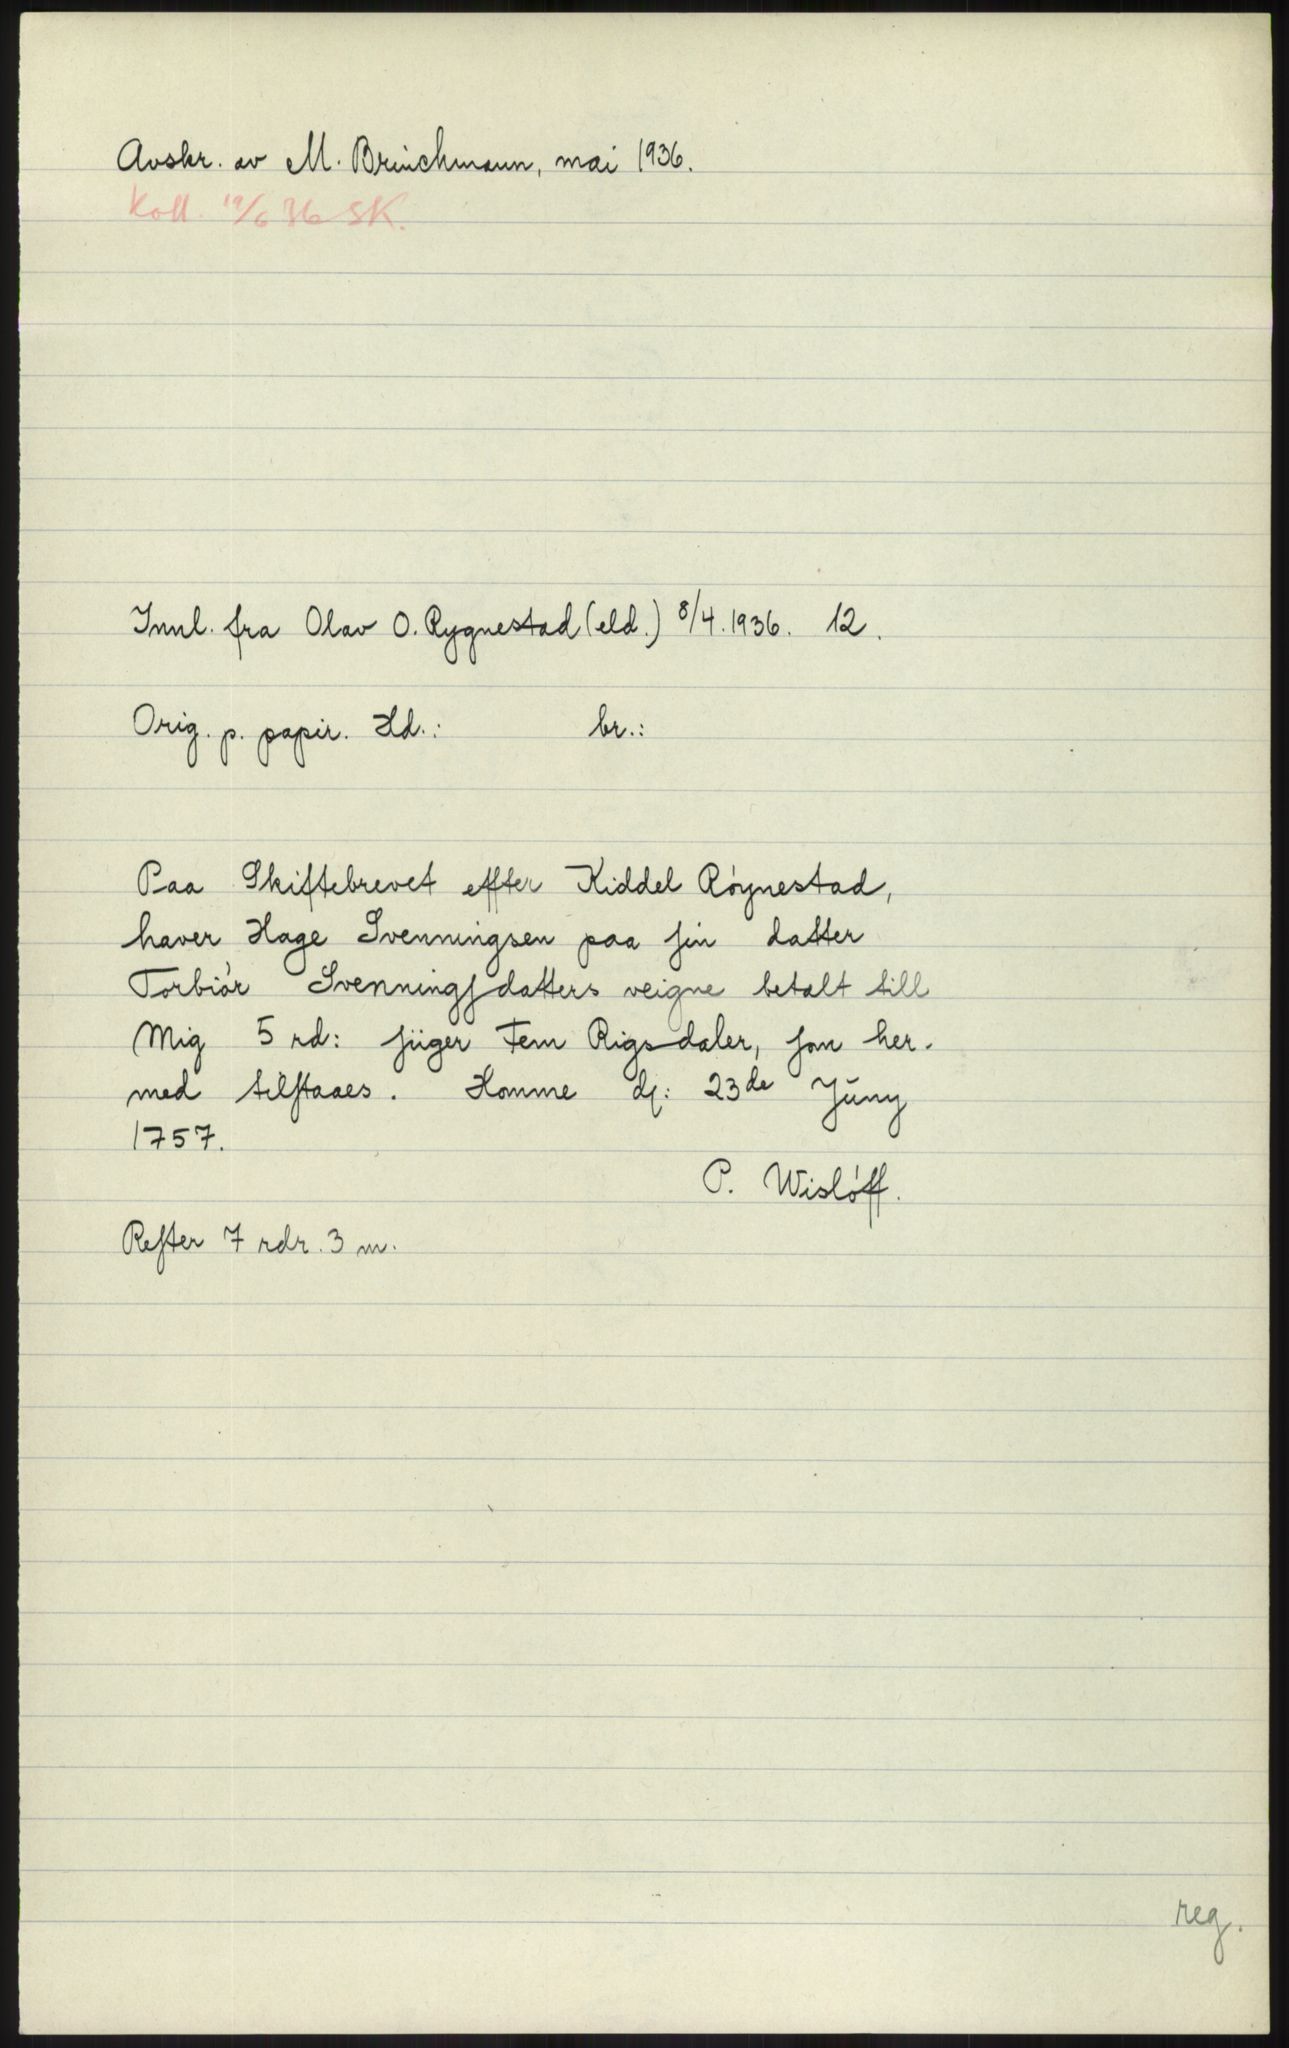 Avskr. av M. Brinchmann, mai 1936.
Koll. 19/6 36 SK.
Innl. fra Olav O. Rygnestad (eld.) 8/4. 1936. 12.
Orig. p. papir. Hd.: br.:
Paa Skiftebrevet effter Kiddel Röynestad,
haver Hage Svenningsen paa ſin datter
Torbiör Svenningſdatters veigne betalt till
Mig 5 rd: ſiiger Fem Rigsdaler, ſom her-
med tilſtaaes. Homme dſ: 23de Jūny
1757.
P. Wislöff.
Reſter 7 rdr. 3 m.
reg.